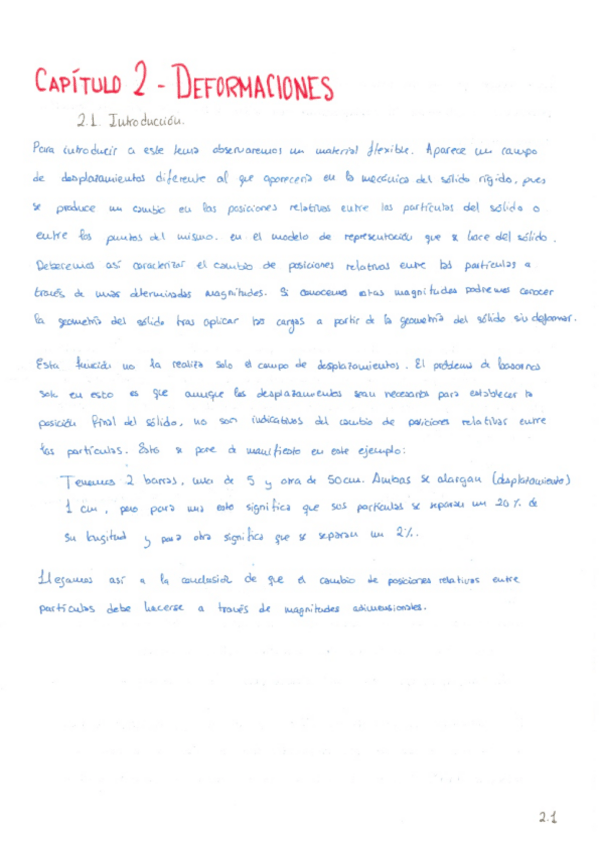 CAPÍTULO 2 - DEFORMACIONES
2.1. Introducción.
Para introducir a este tema observaremos un material flexible. Aparece un campo
de desplazamientos diferente al que aparecería en la mecánica del sólido rígido, pues
se produce un cambio en las posiciones relativas entre las partículas del sólido o
entre los puntos del mismo, en el modelo de representación que se hace del sólido.
Deberemos así caracterizar el cambio de posiciones relativas entre las partículas a
través de unas determinadas magnitudes. Si conocemos estas magnitudes podremos conocer
la geometría del sólido tras aplicar las cargas a partir de la geometría del sólido sin deformar.
Esta función no la realiza solo el campo de desplazamientos. El problema de basarnos
solo en esto es que aunque los desplazamientos sean necesarios para establecer la
posición final del sólido, no son indicativos del cambio de posiciones relativas entre
las partículas. Esto se pone de manifiesto en este ejemplo:
Tenemos 2 barras, una de 5 y otra de 50cm. Ambas se alargan (desplazamiento)
1 cm, pero para una esto significa que sus partículas se separan un 20% de
su longitud y para otra significa que se separan un 2%.
Llegamos así a la conclusión de que el cambio de posiciones relativas entre
partículas debe hacerse a través de magnitudes adimensionales.
2.1